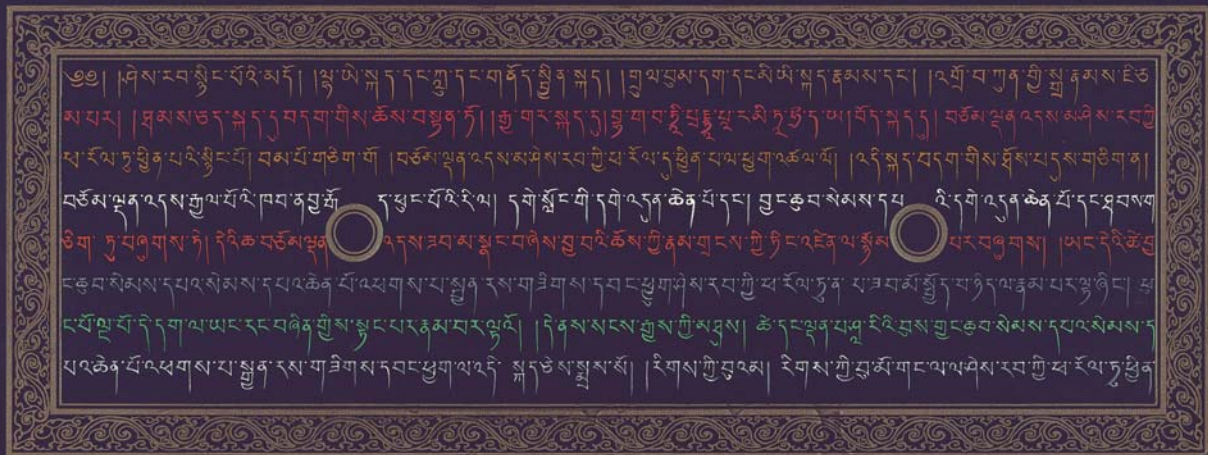 ༄༅། །ཤེས་རབ་སྙིང་པོའི་མདོ། །ལྷ་ཡི་སྐད་དང་ཀླུ་དང་གནོད་སྦྱིན་སྐད། །གྲུལ་བུམ་དག་དང་མི་ཡི་སྐད་རྣམས་དང་། །འགྲོ་བ་ཀུན་གྱི་སྒྲ་རྣམས་ཇི་ཙ
མ་པར། །ཐམས་ཅད་སྐད་དུ་བདག་གིས་ཆོས་བསྟན་ཏོ། །རྒྱ་གར་སྐད་དུ། བྷ་ག་བ་ཏཱི་པྲཛྙཱ་པཱ་ར་མི་ཏཱ་ཧྲྀ་ད་ཡ། བོད་སྐད་དུ། བཅོམ་ལྡན་འདས་མ་ཤེས་རབ་ཀྱི
ཕ་རོལ་ཏུ་ཕྱིན་པའི་སྙིང་པོ། བམ་པོ་གཅིག་གོ །བཅོམ་ལྡན་འདས་མ་ཤེས་རབ་ཀྱི་ཕ་རོལ་དུ་ཕྱིན་པ་ལ་ཕྱག་འཚལ་ལོ། །འདི་སྐད་བདག་གིས་ཐོས་པ་དུས་གཅིག་ན།
བཅོམ་ལྡན་འདས་རྒྱལ་པོའི་ཁབ་ན་བྱ་རྒོ ད་ཕུང་པོའི་རི་ལ། དགེ་སློང་གི་དགེ་འདུན་ཆེན་པོ་དང་། བྱང་ཆུབ་སེམས་དཔ འི་དགེ་འདུན་ཆེན་པོ་དང་ཐབས་ག
ཅིག་ ཏུ་བཞུགས་ཏེ། དེའི་ཚེ་བཅོམ་ལྡན འདས་ཟབ་མ་སྣང་བ་ཞེས་བྱ་བའི་ཆོས་ཀྱི་རྣམ་གྲངས་ཀྱི་ཏིང་འཛིན་ལ་སྙོམ པར་བཞུགས། །ཡང་དེའི་ཚེ་བྱ
ང་ཆུབ་སེམས་དཔའ་སེམས་དཔའ་ཆེན་པོ་འཕགས་པ་སྤྱན་རས་གཟིགས་དབང་ཕྱུག་ཤེས་རབ་ཀྱི་ཕ་རོལ་ཏུ་ན་ པ་ཟབ་མོ་སྤྱོད་པ་ཉིད་ལ་རྣམ་པར་ལྟ་ཞིང་། ཕུ
ང་པོ་ལྔ་པོ་དེ་དག་ལ་ཡང་རང་བཞིན་གྱིས་སྟོང་པར་རྣམ་པར་ལྟའོ། །དེ་ནས་སངས་རྒྱས་ཀྱི་མཐུས། ཚེ་དང་ལྡན་པ་ཤཱ་རིའི་བུས་བྱང་ཆུབ་སེམས་དཔའ་སེམས་ད
པའ་ཆེན་པོ་འཕགས་པ་སྤྱན་རས་གཟིགས་དབང་ཕྱུག་ལ་འདི་ སྐད་ཅེས་སྨྲས་སོ། །རིགས་ཀྱི་བུའམ། རིགས་ཀྱི་བུ་མོ་གང་ལ་ལ་ཤེས་རབ་ཀྱི་ཕ་རོལ་ཏུ་ཕྱིན་